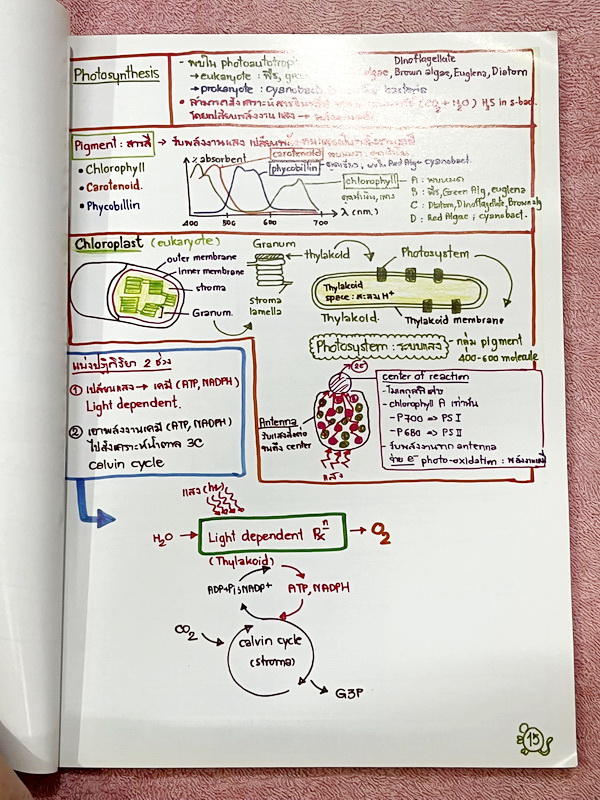 Photosynthesis
- พบใน photoautotroph
Dinoflagellate
→ eukaryote : พืช, algae, Brown algae, Euglena, Diatom
→ prokaryote : cyanobact. bacteria
(CO₂ + H₂O) H₂S in s-bac.
Pigment : สารสี → รับพลังงานแสง
• Chlorophyll
• Carotenoid.
• Phycobillin
% absorbent
carotenoid
phycobillin
Red Alg + cyanobact.
chlorophyll
400 500 600 700 λ (nm.)
A : พบบนบก
B : พืช, Green Alg, euglena
C : Diatom, Dinoflagellate, Brown alg
D : Red Algae ; cyanobact.
Chloroplast (eukaryote)
outer membrane
inner membrane
stroma
Granum.
Granum
stroma
lamella
thylakoid
Photosystem
Thylakoid
space : สะสม H⁺
Thylakoid.
Thylakoid membrane
Photosystem : ระบบแสง - กลุ่ม pigment
400-600 molecule
แบ่งปฏิกิริยา 2 ช่วง
① เปลี่ยนแสง → เคมี (ATP, NADPH)
Light dependent.
② เอาพลังงานเคมี (ATP, NADPH)
ไปสังเคราะห์น้ำตาล 3C
calvin cycle
2e⁻
Antenna
รับแสงส่งต่อ
จนถึง center
แสง
center of reaction
- โมเลกุลพิเศษ
- chlorophyll A เท่านั้น
- P700 ⇒ PS I
- P680 ⇒ PS II
- รับพลังงานจาก antenna
จ่าย e⁻ photo-oxidation :
แสง (hν)
H₂O → Light dependent Rxⁿ → O₂
(Thylakoid)
ADP+Pi, NADP⁺
ATP, NADPH
CO₂
calvin cycle
(stroma)
G3P
15